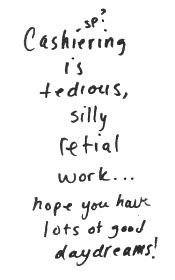 sp?
Cashiering
is
tedious,
silly
retial
work...
hope you have
lots of good
daydreams!